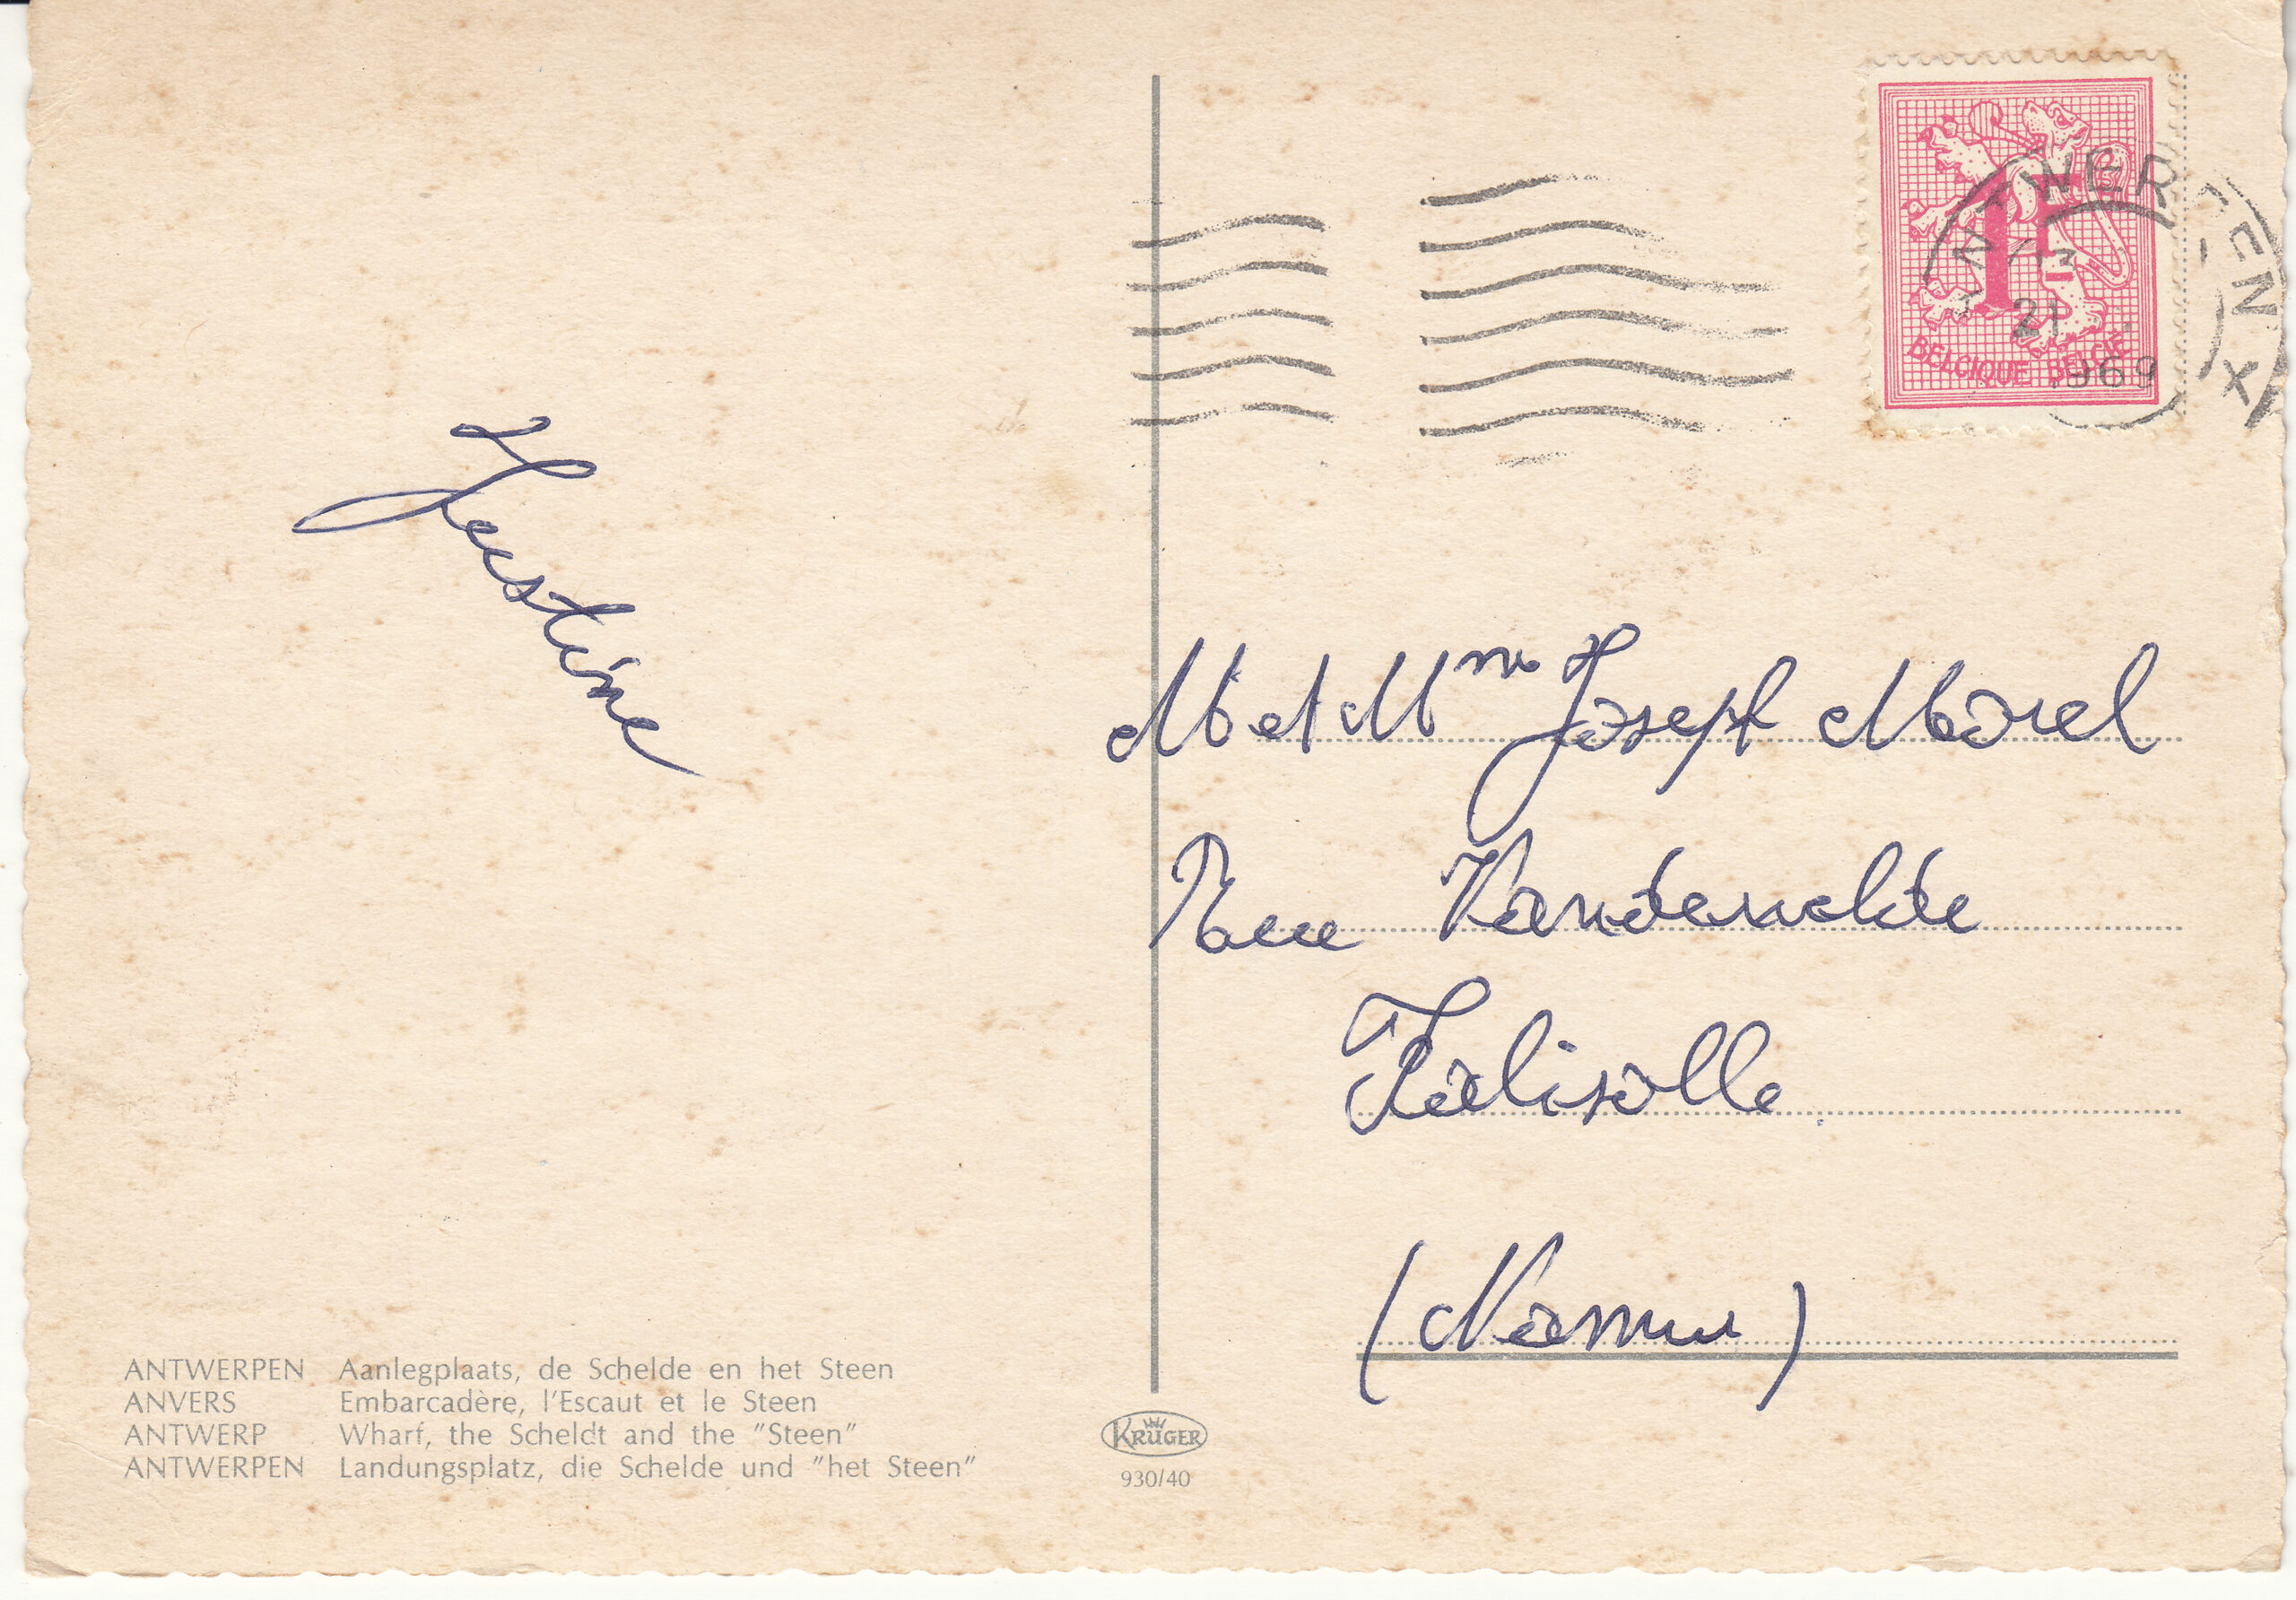 Justine
M et Mme Joseph Morel
Rue Vandervelde
Falisolle
(Namur)
ANTWERPEN Aanlegplaats, de Schelde en het Steen
ANVERS Embarcadère, l'Escaut et le Steen
ANTWERP Wharf, the Scheldt and the "Steen"
ANTWERPEN Landungsplatz, die Schelde und "het Steen"
KRÜGER
930/40
1F
BELGIQUE BELGIË
ANTWERPEN X
21
1969